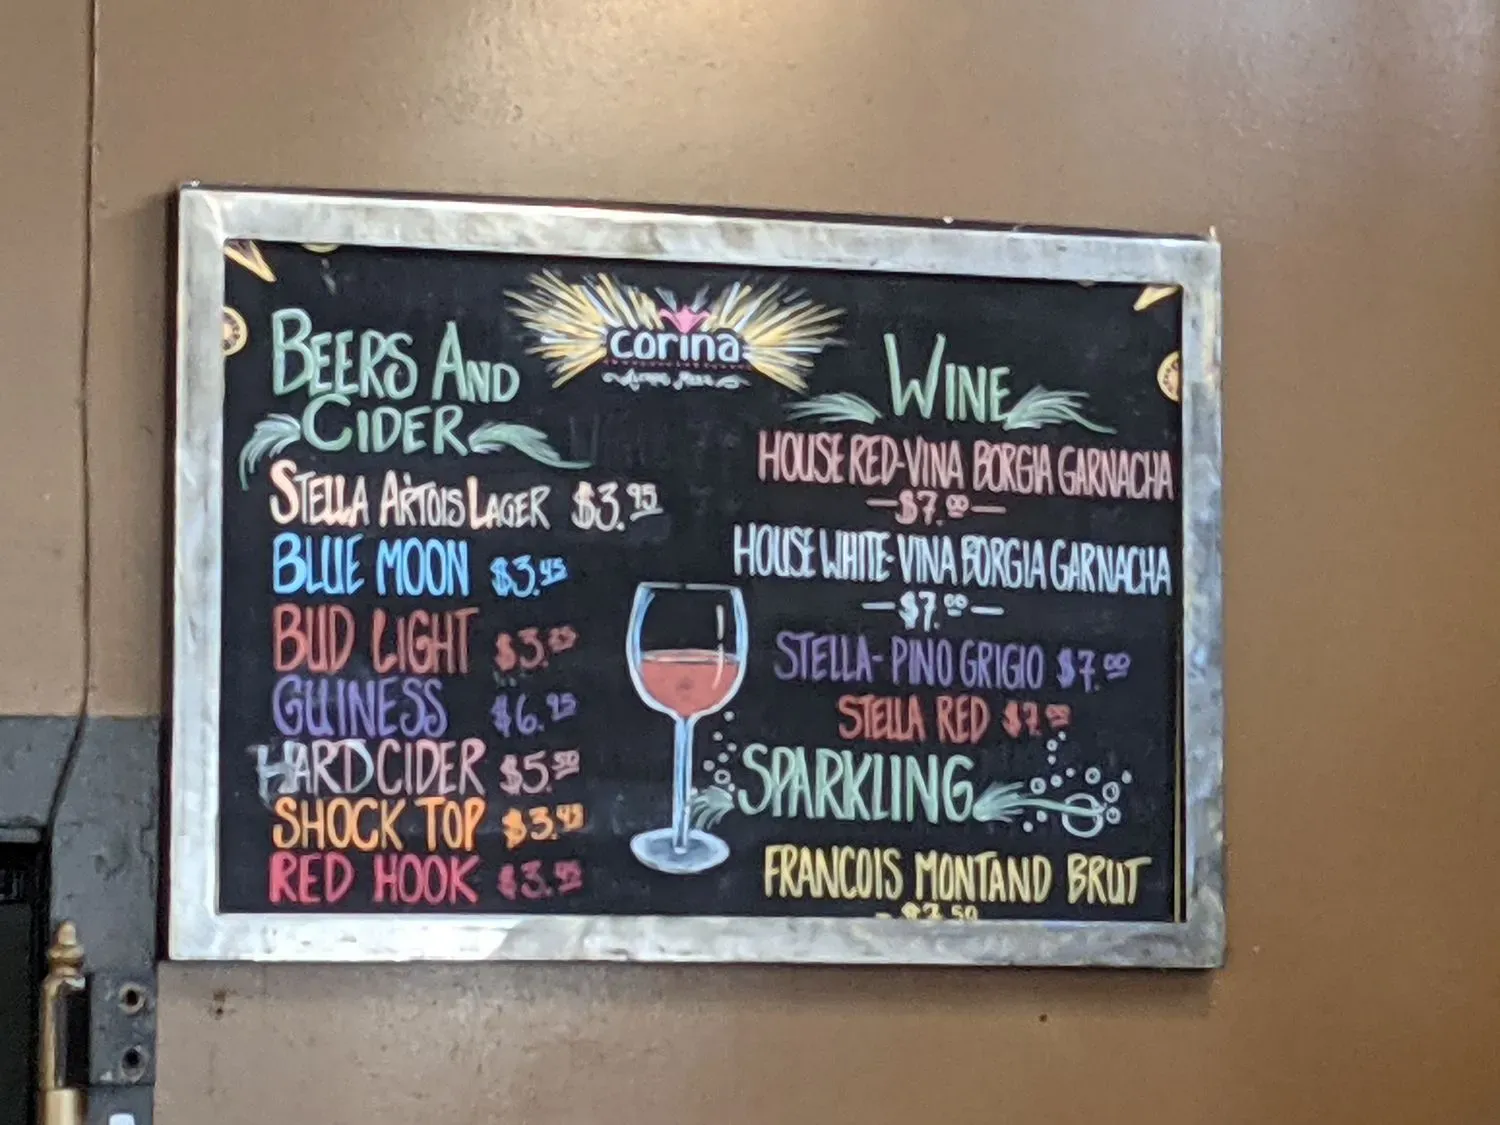 corina
BEERS AND
CIDER
STELLA ARTOIS LAGER $3.95
BLUE MOON $3.45
BUD LIGHT
GUINESS $6.95
HARD CIDER $5.50
SHOCK TOP $3.45
RED HOOK $3.95
WINE
HOUSE RED-VINA BORGIA GARNACHA
—$7.00—
HOUSE WHITE-VINA BORGIA GARNACHA
—$7.00—
STELLA-PINO GRIGIO $7.00
STELLA RED $7.00
SPARKLING
FRANCOIS MONTAND BRUT